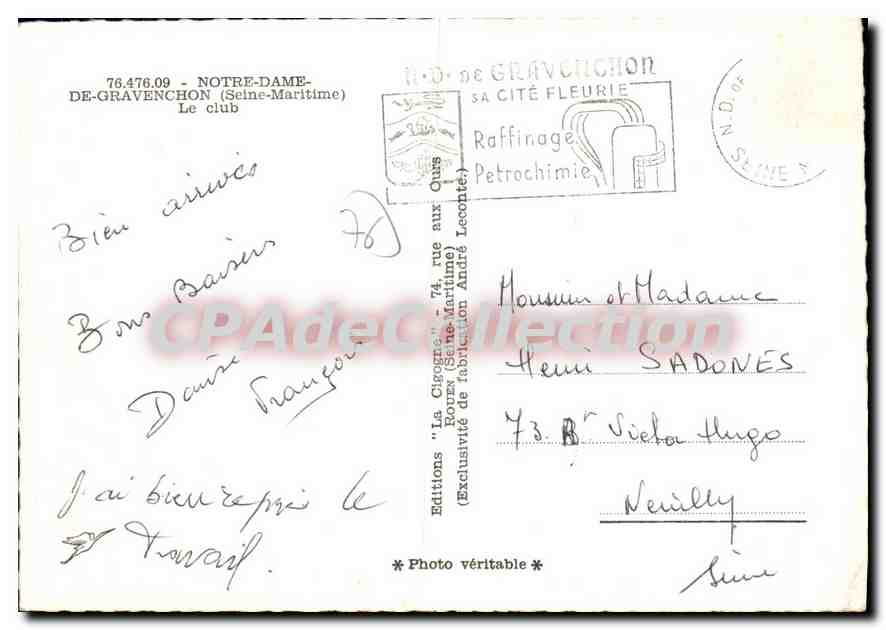 76.476.09 - NOTRE-DAME-
DE-GRAVENCHON (Seine-Maritime)
Le club
N.D. DE GRAVENCHON
SA CITÉ FLEURIE
Raffinage
Petrochimie
N.D. DE
SEINE
Bien arrivés
76
Bons Baisers
Danise
François
J'ai bien repris le
travail.
Editions "La Cigogne" - 74, rue aux Ours
ROUEN (Seine-Maritime)
(Exclusivité de fabrication André Leconte.)
Monsieur et Madame
Henri SADONES
73 Br Victor Hugo
Neuilly
Seine
* Photo véritable *
CPAdeCollection